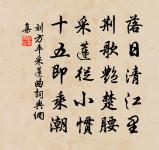 落日清江里
荆歌艳楚腰
采莲从小惯
十五即乘潮
刘方平采莲曲词典网
集